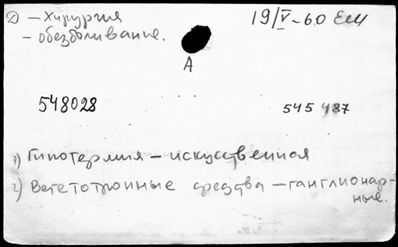 Д – Хирургия
– обезболивание.
19/V-60
А
548028
545487
1) Гипотермия – искусственная
2) Вегетотропные средства – ганглионар-
ные.